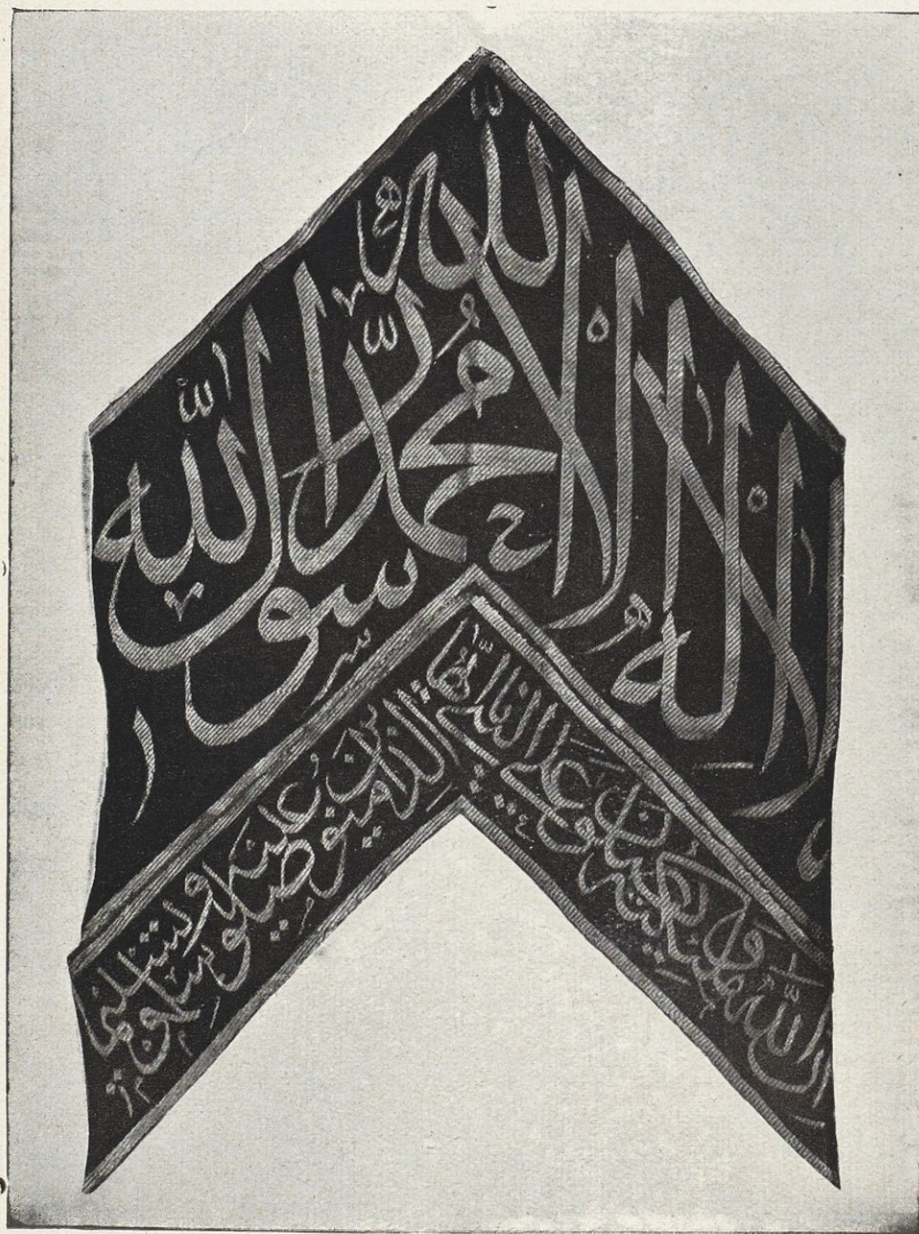 لا اله الا الله محمد رسول الله
ان الله وملئكته يصلون على النبى يا ايها الذين امنوا صلوا عليه وسلموا تسليما